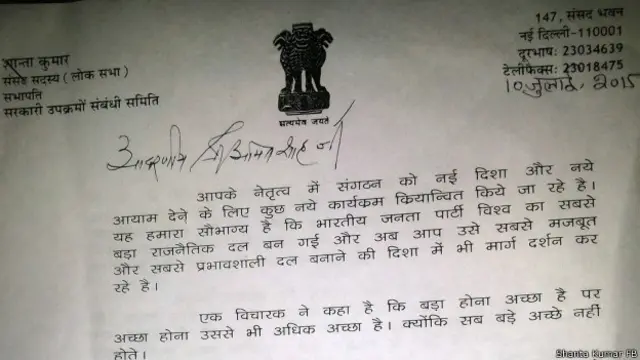 शान्ता कुमार
संसद सदस्य ( लोक सभा )
सभापति
सरकारी उपक्रमों संबंधी समिति
147, संसद भवन
नई दिल्ली-110001
दूरभाष: 23034639
टेलीफैक्स: 23018475
10 जुलाई, 2015
सत्यमेव जयते
आदरणीय श्री अमित शाह जी
आपके नेतृत्व में संगठन को नई दिशा और नये
आयाम देने के लिए कुछ नये कार्यकम कियान्वित किये जा रहे है।
यह हमारा सौभाग्य है कि भारतीय जनता पार्टी विश्व का सबसे
बड़ा राजनैतिक दल बन गई और अब आप उसे सबसे मजबूत
और सबसे प्रभावशाली दल बनाने की दिशा में भी मार्ग दर्शन कर
रहे है।
एक विचारक ने कहा है कि बड़ा होना अच्छा है पर
अच्छा होना उससे भी अधिक अच्छा है। क्योंकि सब बड़े अच्छे नहीं
होते।
Shanta Kumar FB